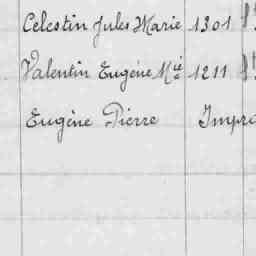 Celestin Jules Marie 1301
Valentin Eugène Mie 1211
Eugène Pierre Impro